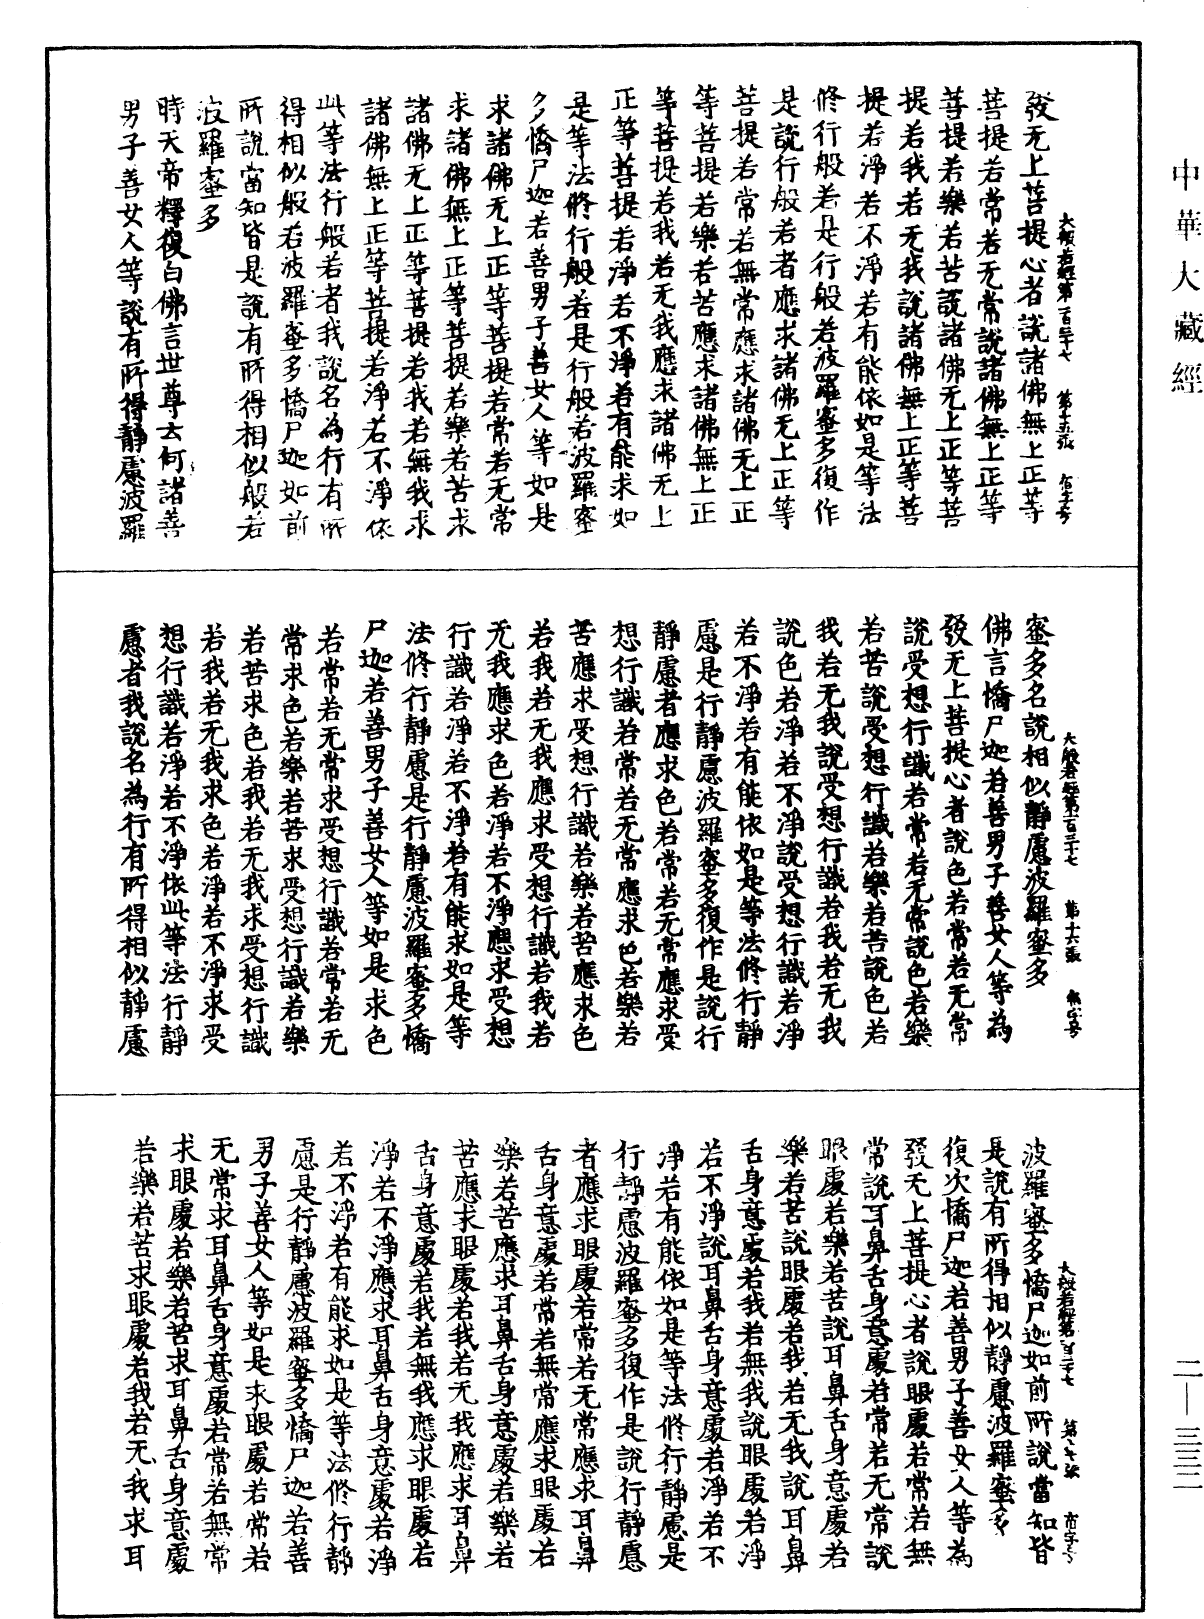 中華大藏經
大般若經第一百三十七 第十五張
發无上菩提心者說諸佛無上正等
菩提若常若无常說諸佛無上正等
菩提若樂若苦說諸佛无上正等菩
提若我若无我說諸佛無上正等菩
提若淨若不淨若有能依如是等法
修行般若是行般若波羅蜜多復作
是說行般若者應求諸佛无上正等
菩提若常若無常應求諸佛无上正
等菩提若樂若苦應求諸佛無上正
等菩提若我若无我應求諸佛无上
正等菩提若淨若不淨若有能求如
是等法修行般若是行般若波羅蜜
多憍尸迦若善男子善女人等如是
求諸佛无上正等菩提若常若无常
求諸佛無上正等菩提若樂若苦求
諸佛无上正等菩提若我若無我求
諸佛無上正等菩提若淨若不淨依
此等法行般若者我說名為行有所
得相似般若波羅蜜多憍尸迦如前
所說當知皆是說有所得相似般若
波羅蜜多
時天帝釋復白佛言世尊云何諸善
男子善女人等說有所得靜慮波羅
大般若經第一百三十七 第十六張
蜜多名說相似靜慮波羅蜜多
佛言憍尸迦若善男子善女人等為
發无上菩提心者說色若常若无常
說受想行識若常若无常說色若樂
若苦說受想行識若樂若苦說色若
我若无我說受想行識若我若无我
說色若淨若不淨說受想行識若淨
若不淨若有能依如是等法修行靜
慮是行靜慮波羅蜜多復作是說行
靜慮者應求色若常若无常應求受
想行識若常若无常應求色若樂若
苦應求受想行識若樂若苦應求色
若我若无我應求受想行識若我若
无我應求色若淨若不淨應求受想
行識若淨若不淨若有能求如是等
法修行靜慮是行靜慮波羅蜜多憍
尸迦若善男子善女人等如是求色
若常若无常求受想行識若常若无
常求色若樂若苦求受想行識若樂
若苦求色若我若无我求受想行識
若我若无我求色若淨若不淨求受
想行識若淨若不淨依此等法行靜
慮者我說名為行有所得相似靜慮
大般若經第一百三十七 第十七張
波羅蜜多憍尸迦如前所說當知皆
是說有所得相似靜慮波羅蜜多
復次憍尸迦若善男子善女人等為
發无上菩提心者說眼處若常若無
常說耳鼻舌身意處若常若无常說
眼處若樂若苦說耳鼻舌身意處若
樂若苦說眼處若我若无我說耳鼻
舌身意處若我若無我說眼處若淨
若不淨說耳鼻舌身意處若淨若不
淨若有能依如是等法修行靜慮是
行靜慮波羅蜜多復作是說行靜慮
者應求眼處若常若无常應求耳鼻
舌身意處若常若無常應求眼處若
樂若苦應求耳鼻舌身意處若樂若
苦應求眼處若我若无我應求耳鼻
舌身意處若我若無我應求眼處若
淨若不淨應求耳鼻舌身意處若淨
若不淨若有能求如是等法修行靜
慮是行靜慮波羅蜜多憍尸迦若善
男子善女人等如是求眼處若常若
无常求耳鼻舌身意處若常若無常
求眼處若樂若苦求耳鼻舌身意處
若樂若苦求眼處若我若无我求耳
二—三三二